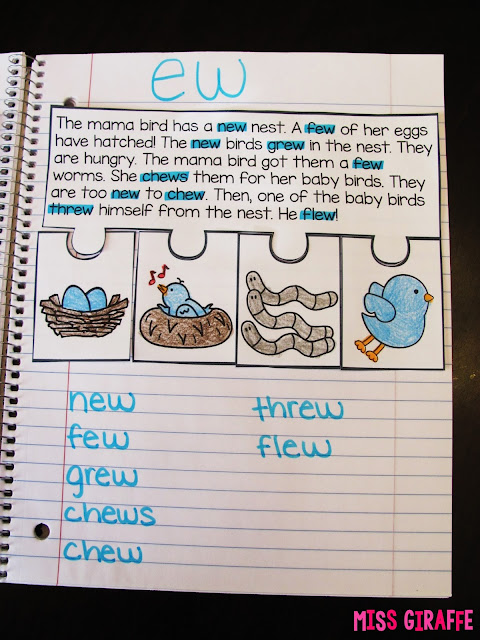 ew
The mama bird has a new nest. A few of her eggs
have hatched! The new birds grew in the nest. They
are hungry. The mama bird got them a few
worms. She chews them for her baby birds. They
are too new to chew. Then, one of the baby birds
threw himself from the nest. He flew!
new
few
grew
chews
chew
threw
flew
MISS GIRAFFE